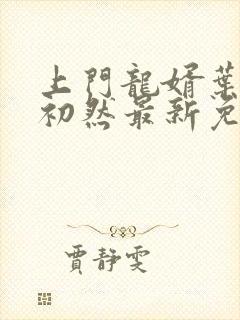 上門龍婿葉
初然最新免
賈静雯